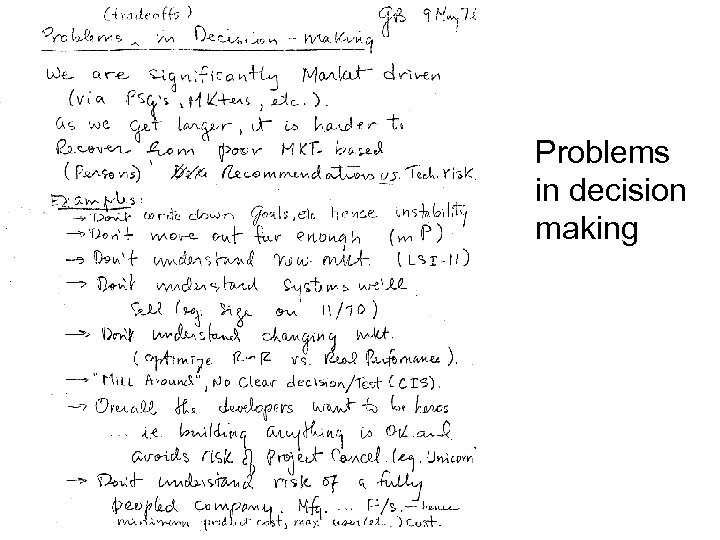 (tradeoffs) GB 9 May 7
Problems in Decision-making
We are significantly Market driven
(via PSG's, MKters, etc.).
as we get larger, it is harder to
Recover from poor MKT- based
(Persons) Recommendations vs. Tech. risk.
Examples:
→ Don't write down goals, etc hence instability
→ Don't move out far enough (mP)
→ Don't understand new mkt. (LSI-11)
→ Don't understand systems we'll
sell (eg. size on 11/70)
→ Don't understand changing mkt.
(optimize R-R vs. Real Performance).
→ "Mill Around", No Clear decision/Test (CIS).
→ Overall the developers want to be heros
... i.e. building anything is OK and
avoids risk of Project Cancel. (eg. Unicorn
→ Don't understand risk of a fully
peopled company. Mfg. ... F/s. - hence
minimum product cost, max user ) cost.
Problems
in decision
making